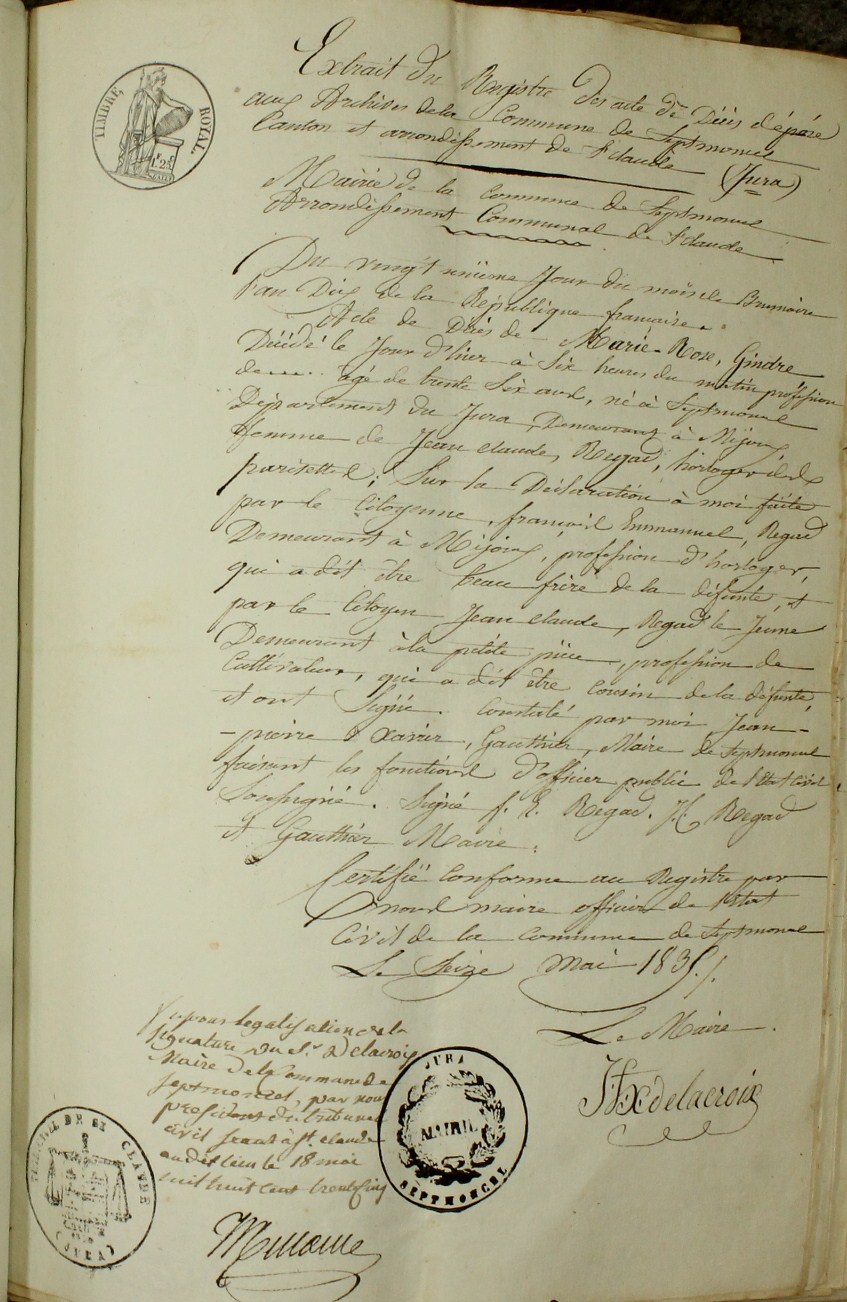 TIMBRE ROYAL.
1.25
Extrait du Registre des acte de Décès dépozé
aux Archives de la Commune de Septmoncel
Canton et arrondissement de St claude (Jura)
Mairie de la commune de Septmoncel
Arrondissement Communal de St claude
Du vingt unième Jour du mois de Brumaire
l'an Dix de la République francaise.
Acte de Décès de Marie-Rose, Gindre
Décédé le Jour d'hier à Six heures du matin, profession
de..... agé de trente Six ans, né à Septmoncel
Département du Jura, Demeurant à Mijoux
femme de Jean claude, Regad, horoger
Sur la Déclaration à moi faite
par le Citoyenne, françois Emmanuel, Regad
Demeurant à Mijoux, profession d'horloger,
qui a dit être beau frère de la défunte, et
par le Citoyen Jean claude, Regad le Jeune
Demeurant à la petite pièce, profession de
Cultivateur, qui a dit être Cousin de la défunte,
et ont Signé. Constaté par moi Jean-
-pierre Xavier, Gauthier, Maire de Septmoncel
faisant les fonctions d'officier public de l'Etat Civil
Soussigné. Signé f. E. Regad. Regad
et Gauthier Maire.
Certifié Conforme au Registre par
nous maire officier de l'Etat
Civil de la commune de Septmoncel
Le Seize Mai 1835.
Le Maire.
Delacroix
Vu pour Legalisation de la
Signature du Sr. Delacroix
Maire de la Commune de
Septmoncel, par nous
president du tribunal
civil seant à St. claude
audit lieu le 18 mai
mil huit cent trente cinq
JURA
MAIRIE
SEPTMONCEL
TRIBUNAL DE ST CLAUDE
(JURA)